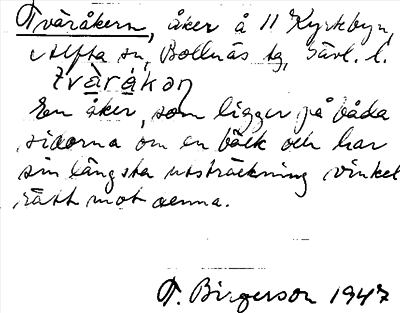 Tväråkern, åker å 11 Kyrkbyn,
Alfta sn, Bollnäs tg, Gävl. l.
tvàråkən
En åker, som ligger på båda
sidorna om en bäck och har
sin längsta utsträckning vinkel
rätt mot denna.
T. Birgerson 1947